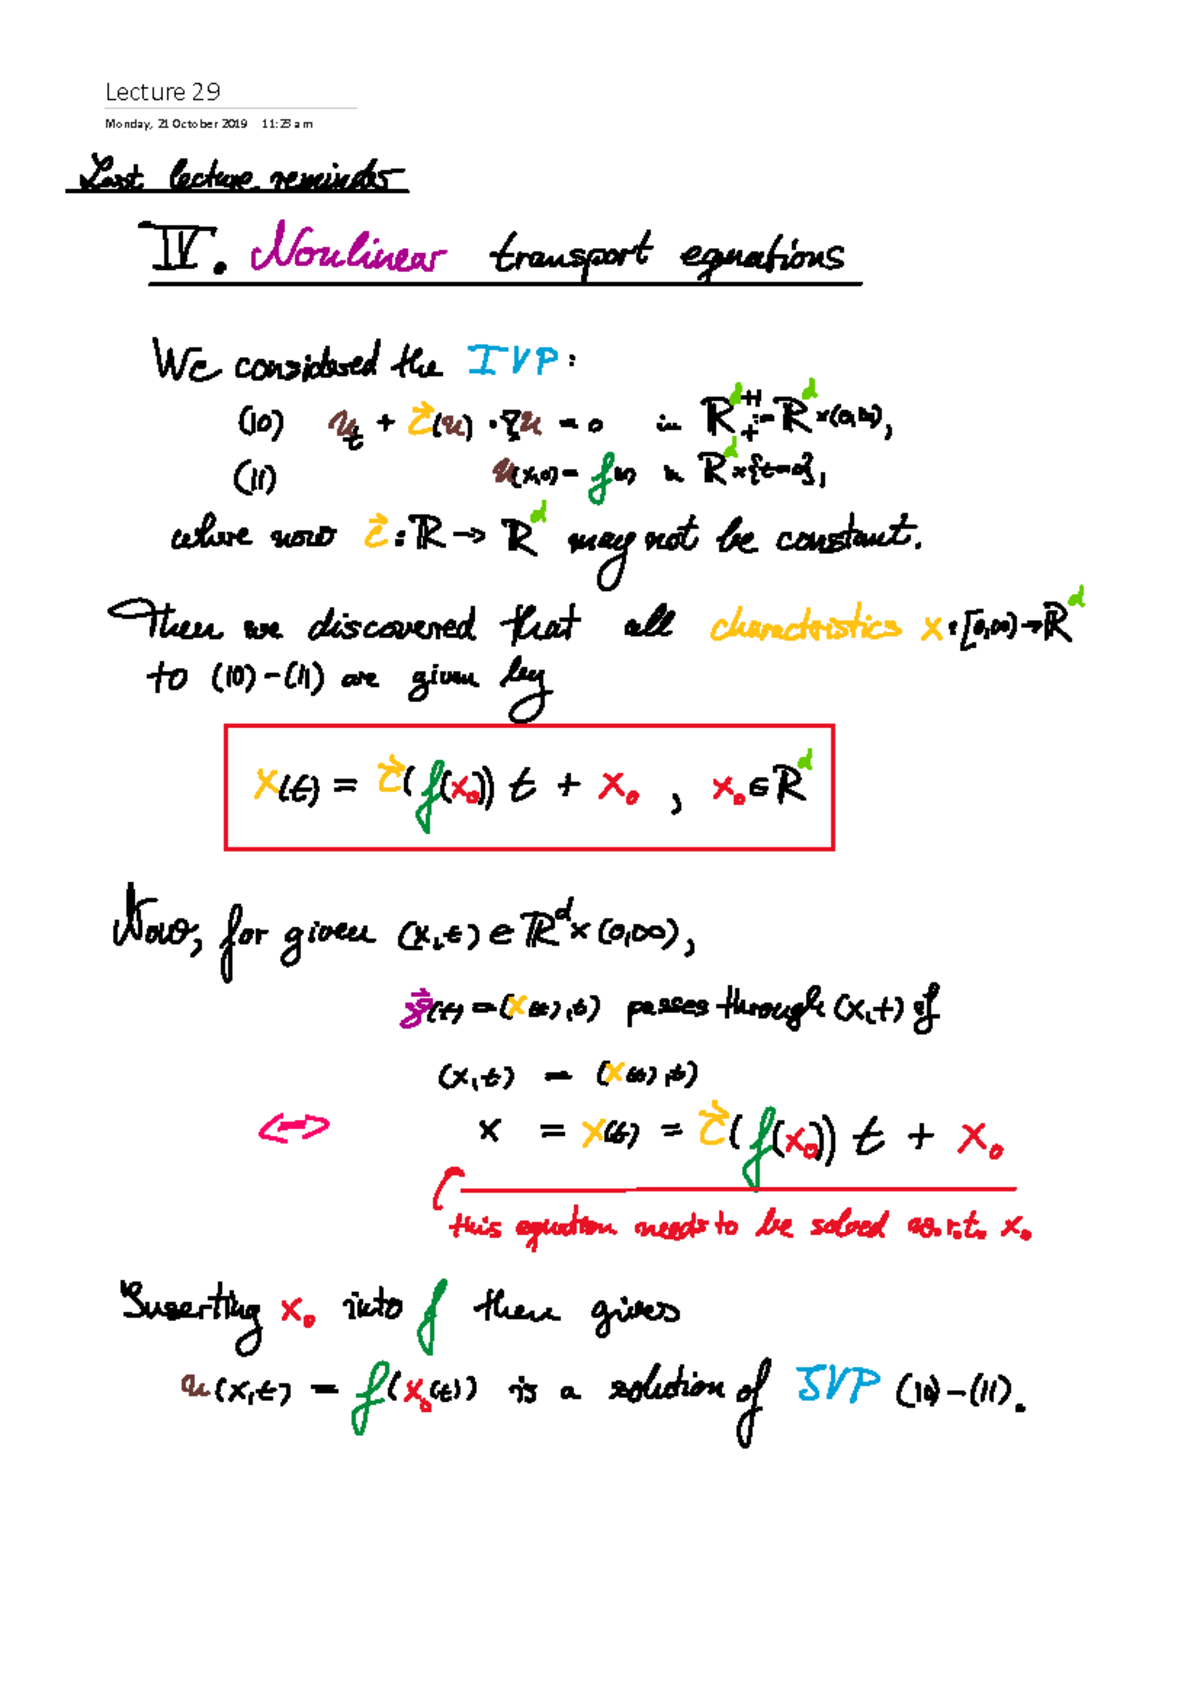 Lecture 29
Monday, 21 October 2019 11:23 am
Last lecture reminder
IV. Nonlinear transport equations
We considered the IVP:
(10) u_t + c⃗(u) · ∇u = 0 in ℝ^{d+1}_+ := ℝ^d × (0,∞),
(11) u(x,0) = f(x) in ℝ^d × {t=0},
where now c⃗ : ℝ → ℝ^d may not be constant.
Then we discovered that all characteristics x : [0,∞) → ℝ^d
to (10)-(11) are given by
x(t) = c⃗(f(x₀)) t + x₀ , x₀ ∈ ℝ^d
Now, for given (x,t) ∈ ℝ^d × (0,∞),
(t) = (x(t),t) passes through (x,t) if
(x,t) = (x(t),t)
⟺ x = x(t) = c⃗(f(x₀)) t + x₀
this equation needs to be solved w.r.t. x₀
Inserting x₀ into f then gives
u(x,t) = f(x₀(t)) is a solution of IVP (10)-(11).